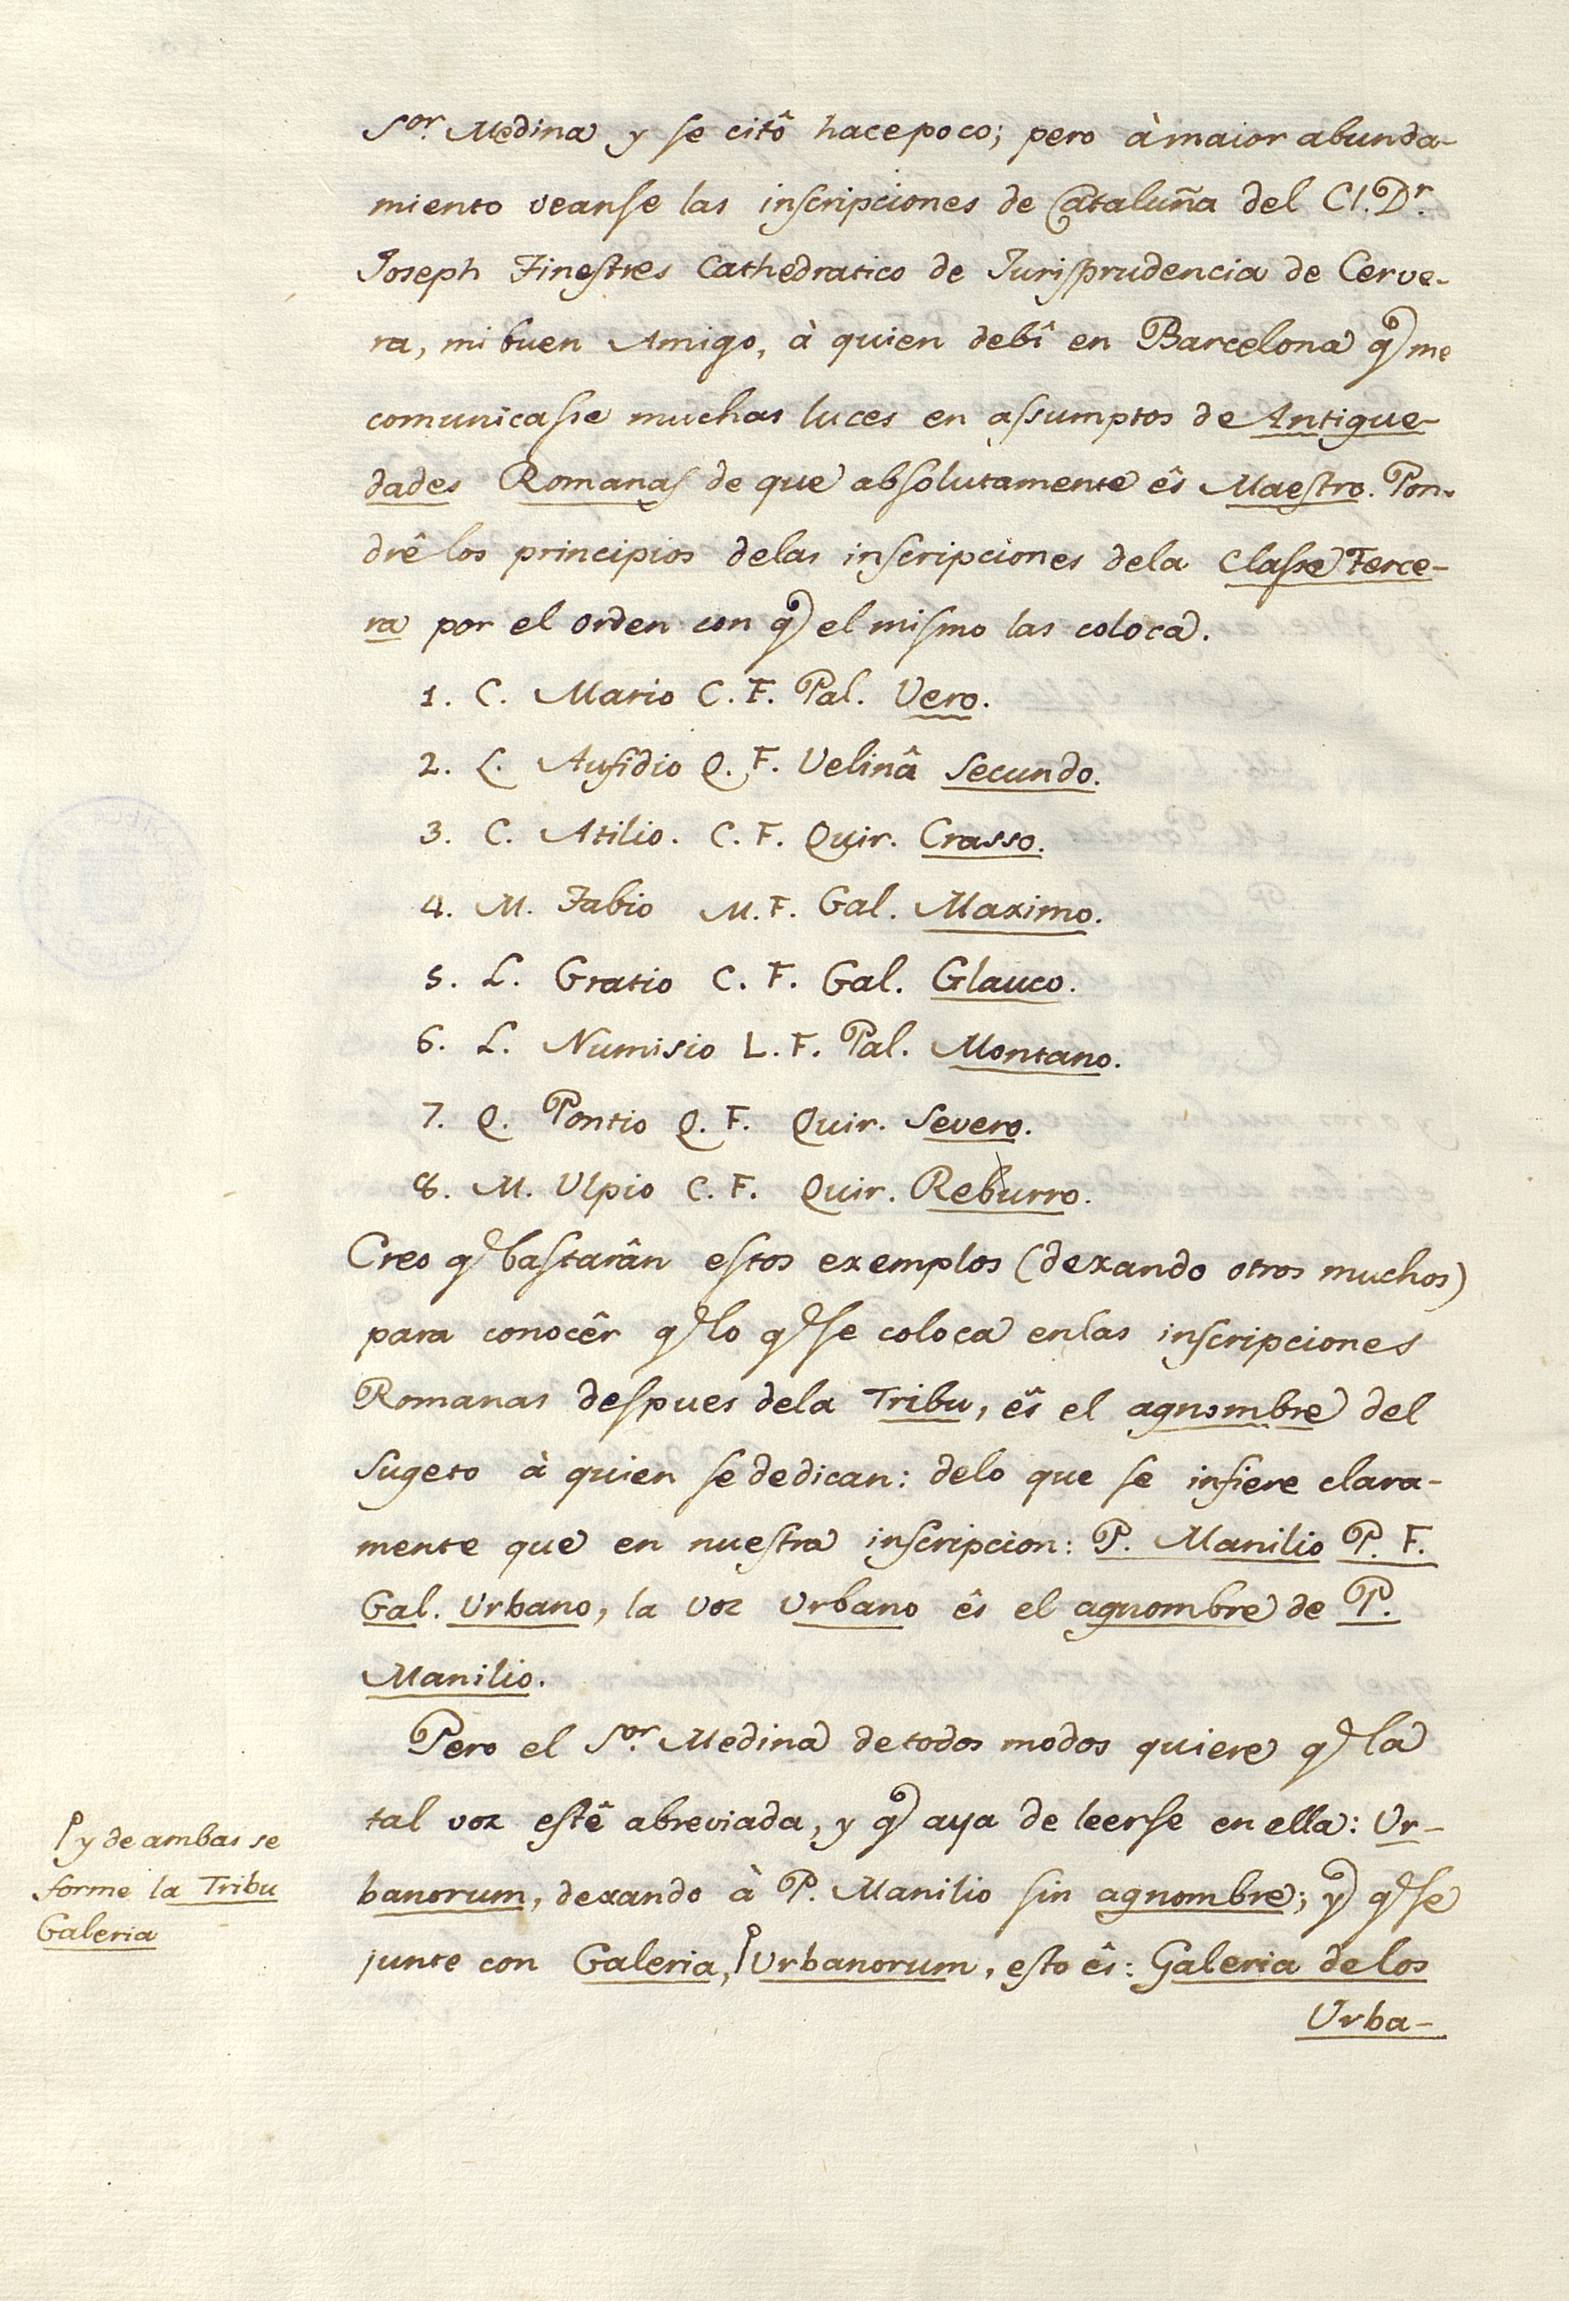 Sor. Medina y se citô hace poco; pero à maior abunda-
miento veanse las inscripciones de Cataluña del Cl. Dr.
Joseph Finestres Cathedratico de Jurisprudencia de Cerve-
ra, mi buen Amigo, à quien debî en Barcelona q me
comunicasse muchas luces en assumptos de Antigue-
dades Romanas de que absolutamente ês Maestro. Pon-
drê los principios delas inscripciones dela Classe Terce-
ra por el orden con q el mismo las coloca.
1. C. Mario C. F. Pal. Vero.
2. L. Aufidio Q. F. Velinâ Secundo.
3. C. Atilio. C. F. Quir. Crasso.
4. M. Fabio M. F. Gal. Maximo.
5. L. Gratio C. F. Gal. Glauco.
6. L. Numisio L. F. Pal. Montano.
7. Q. Pontio Q. F. Quir. Severo.
8. M. Ulpio C. F. Quir. Reburro.
Creo q bastarân estos exemplos (dexando otros muchos)
para conocêr q lo q se coloca enlas inscripciones
Romanas despues dela Tribu, ês el agnombre del
Sugeto à quien se dedican: delo que se infiere clara-
mente que en nuestra inscripcion: P. Manilio P. F.
Gal. Urbano, la voz Urbano ês el agnombre de P.
Manilio.
Pero el Sor. Medina de todos modos quiere q la
tal voz estê abreviada, y q aya de leerse en ella: Ur-
banorum, dexando à P. Manilio sin agnombre; y q se
junte con Galeria, Urbanorum, esto ês: Galeria de los
Urba-
y de ambas se
forme la Tribu
Galeria